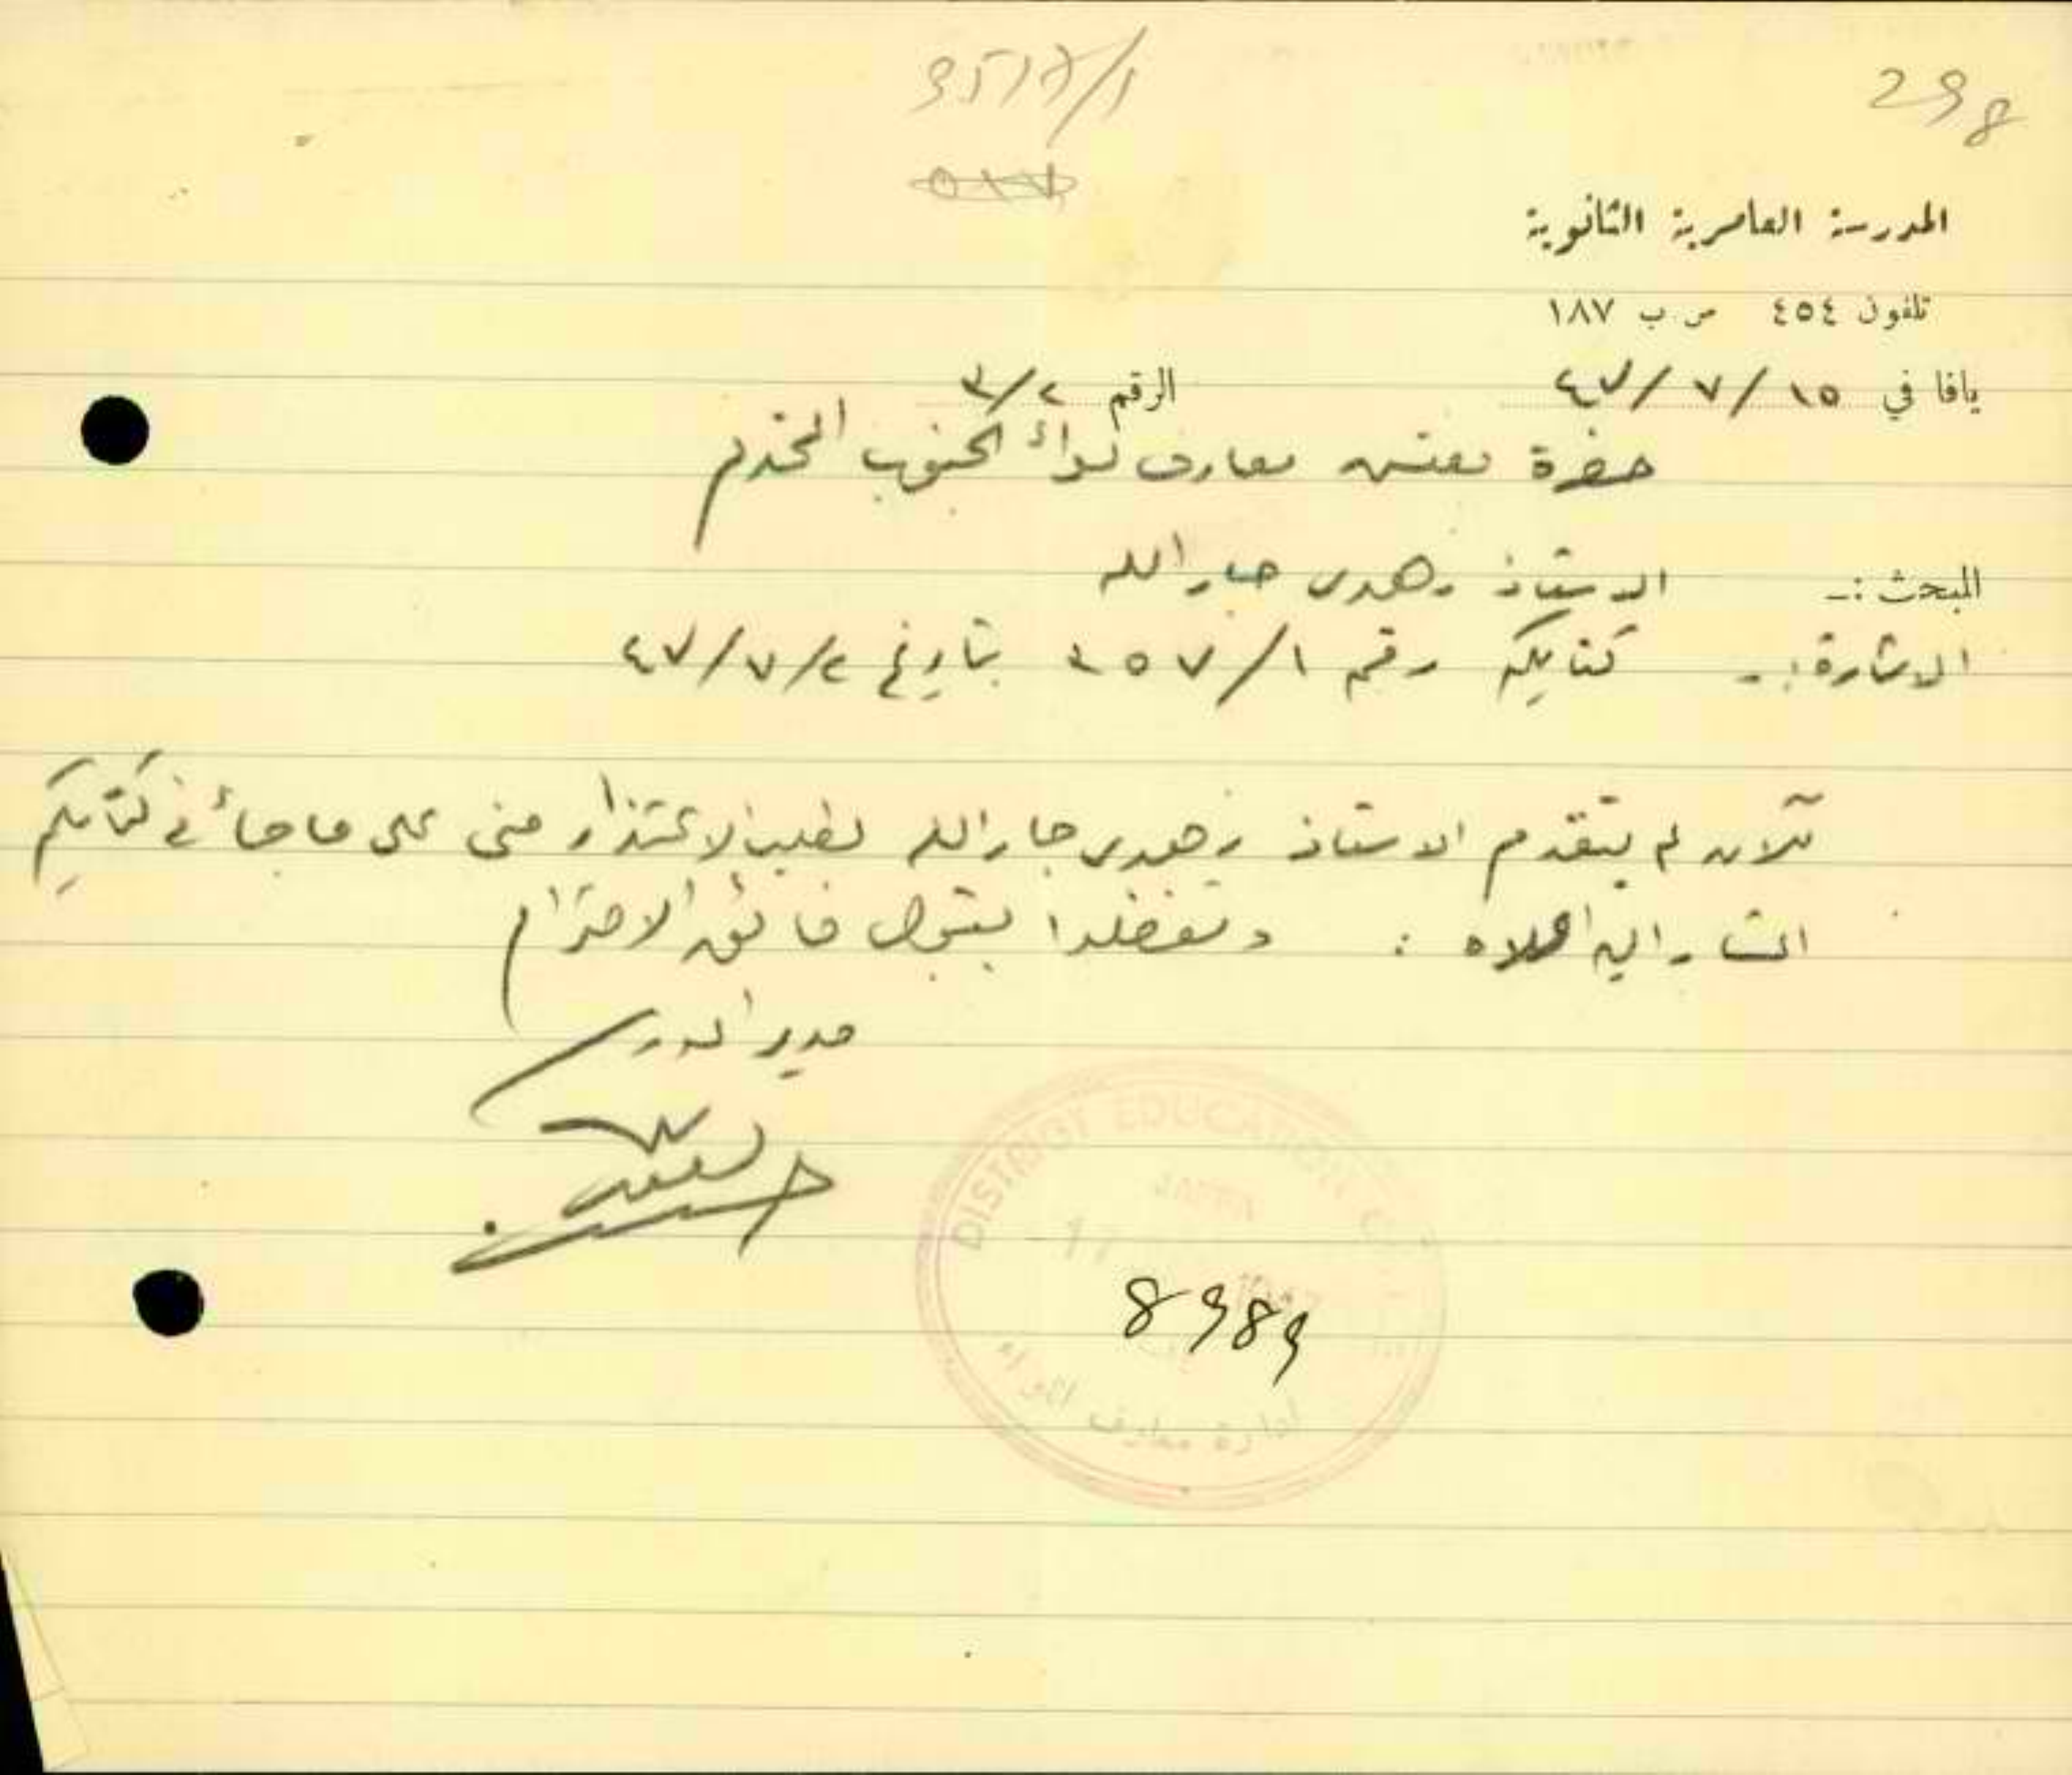 298
3517/1
٥١٧
المدرسة العامرية الثانوية
تلفون ٤٥٤ ص ب ١٨٧
يافا في ١٥/٧/٤٧ الرقم ٣/٢
حضرة مفتش معارف لواء الجنوب المحترم
المبحث :- الاستاذ زهدي جار الله
الاشارة :- كتابكم رقم ٣٥٧/١ بتاريخ ٤٧/٧/٢
للآن لم يتقدم الاستاذ زهدي جار الله لطلب الاعتذار مني على ما جاء في كتابكم
المشار اليه اعلاه : وتفضلوا بقبول فائق الاحترام
مدير المدرسة
DISTRICT EDUCATION
JAFFA
17
8989
ادارة معارف اللواء